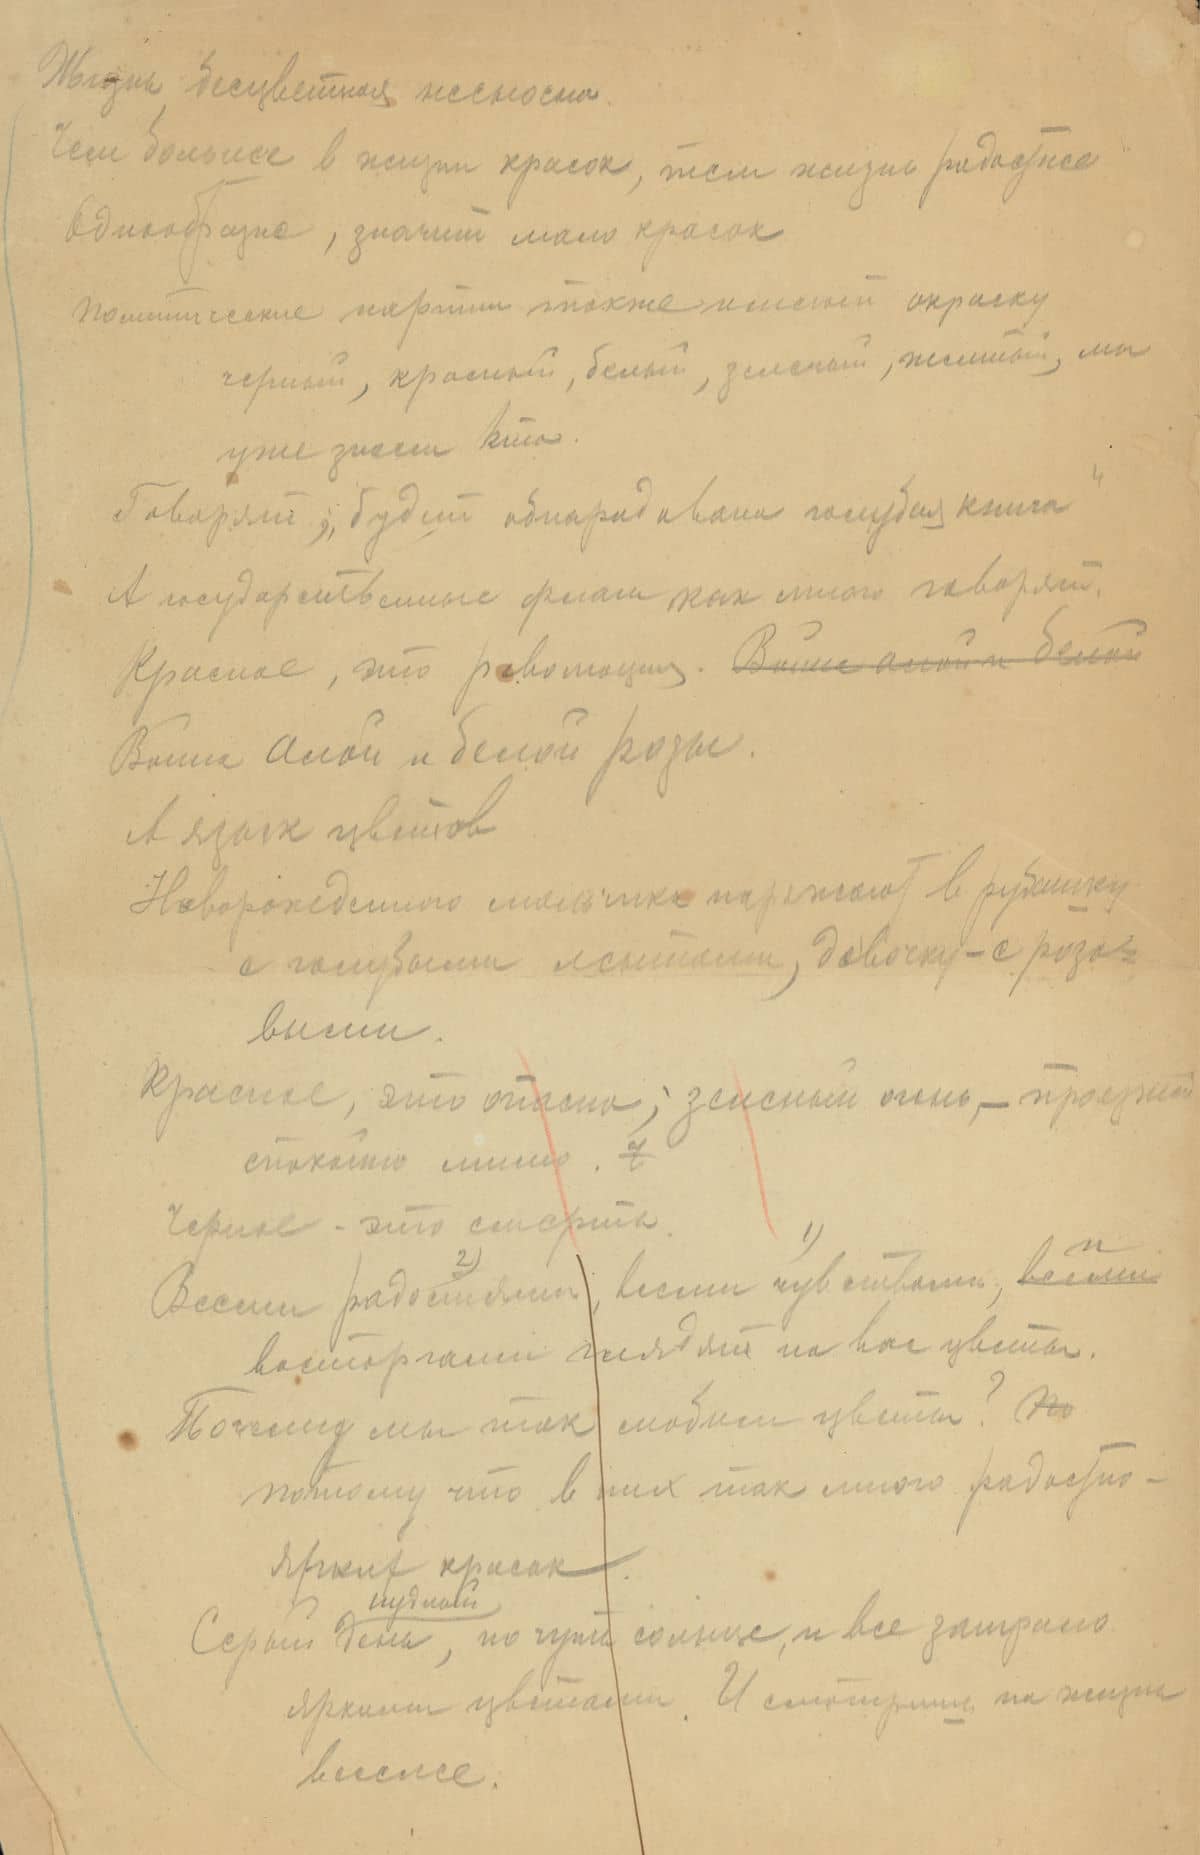 Жизнь бесцветная несносна.
Чем больше в жизни красок, тем жизнь радостнее
Однообразие, значит мало красок
Политические партии также имеют окраску
черный, красный, белый, зеленый, желтый, мы
уже знаем кто.
Говорят, „будет обнародована голубая книга"
А государственные флаги как много говорят.
Красное, это революция. Война алой и белой
Война Алой и белой розы.
А язык цветов
Новорожденного мальчика наряжают в рубашку
с голубыми лентами, девочку – с розо=
выми.
Красное, это опасно; зеленый огонь, – проезжай
спокойно мимо. Ч
Черное – это смерть.
2) 1) и
Всеми радостями, всеми чувствами, всеми
восторгами глядят на вас цветы.
Почему мы так любим цветы? По
потому что в них так много радостно-
ярких красок.
нудный
Серый день, но чуть солнце, и все заиграло
яркими цветами. И смотришь на жизнь
веселее.